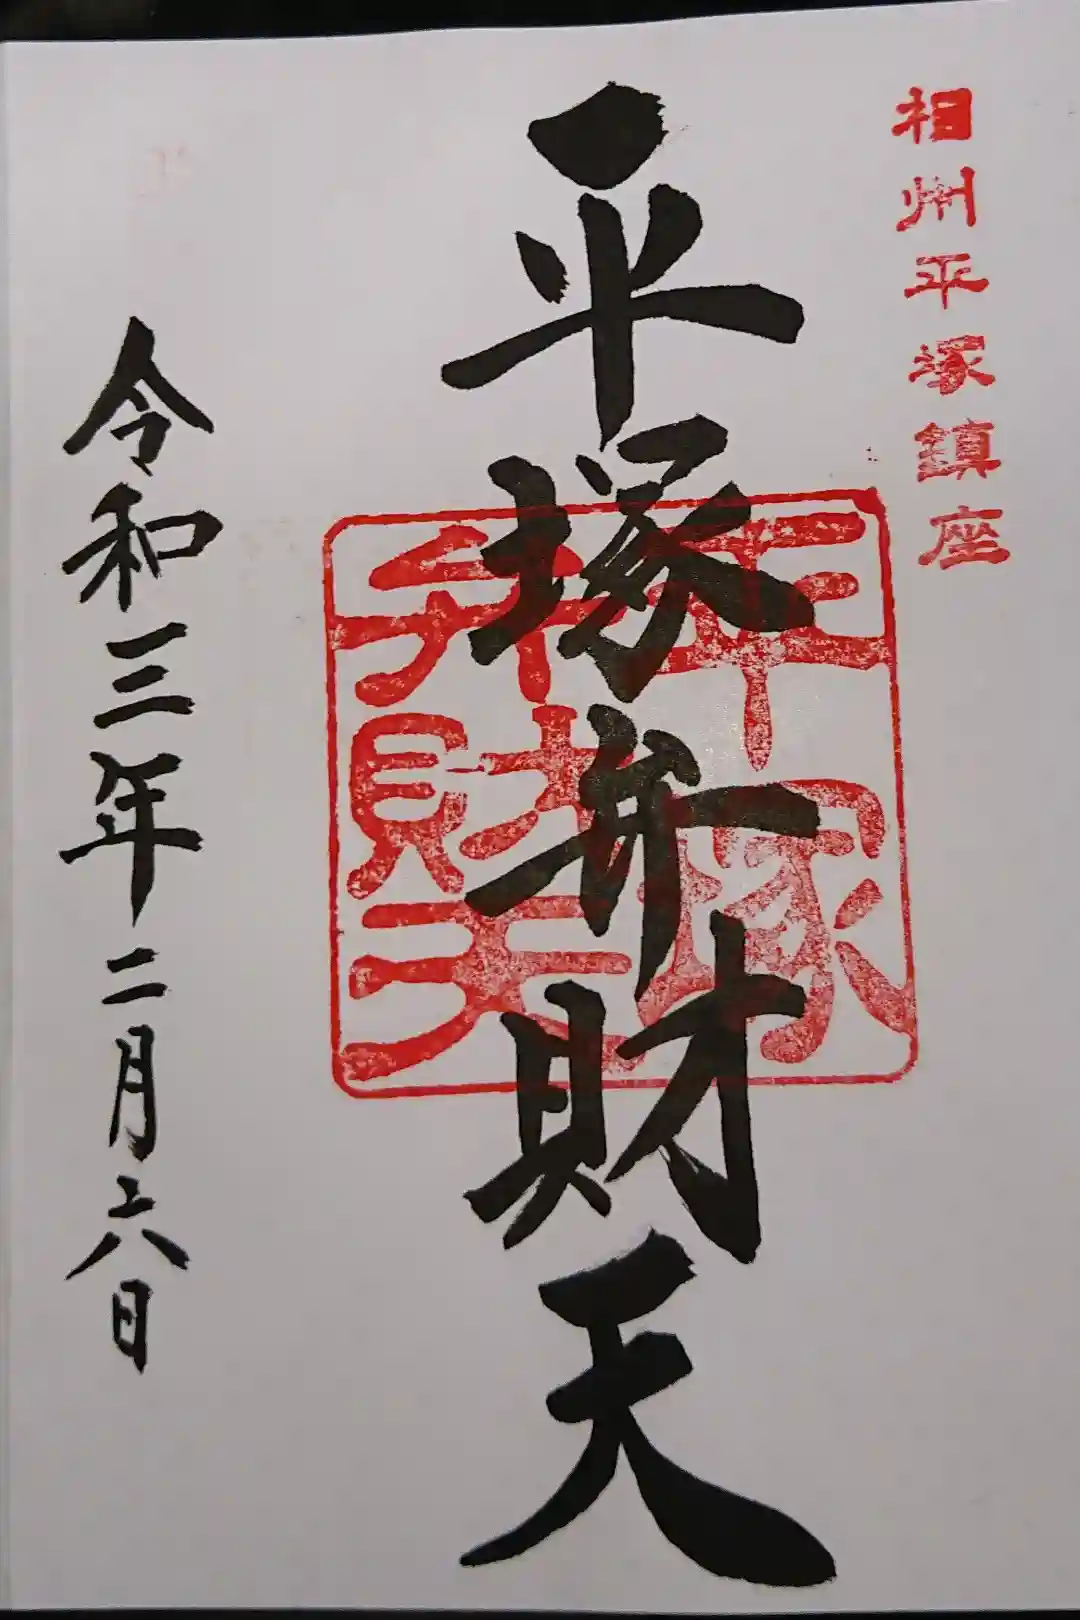 相州平塚鎮座
平塚弁財天
平塚
弁財天
令和三年二月六日